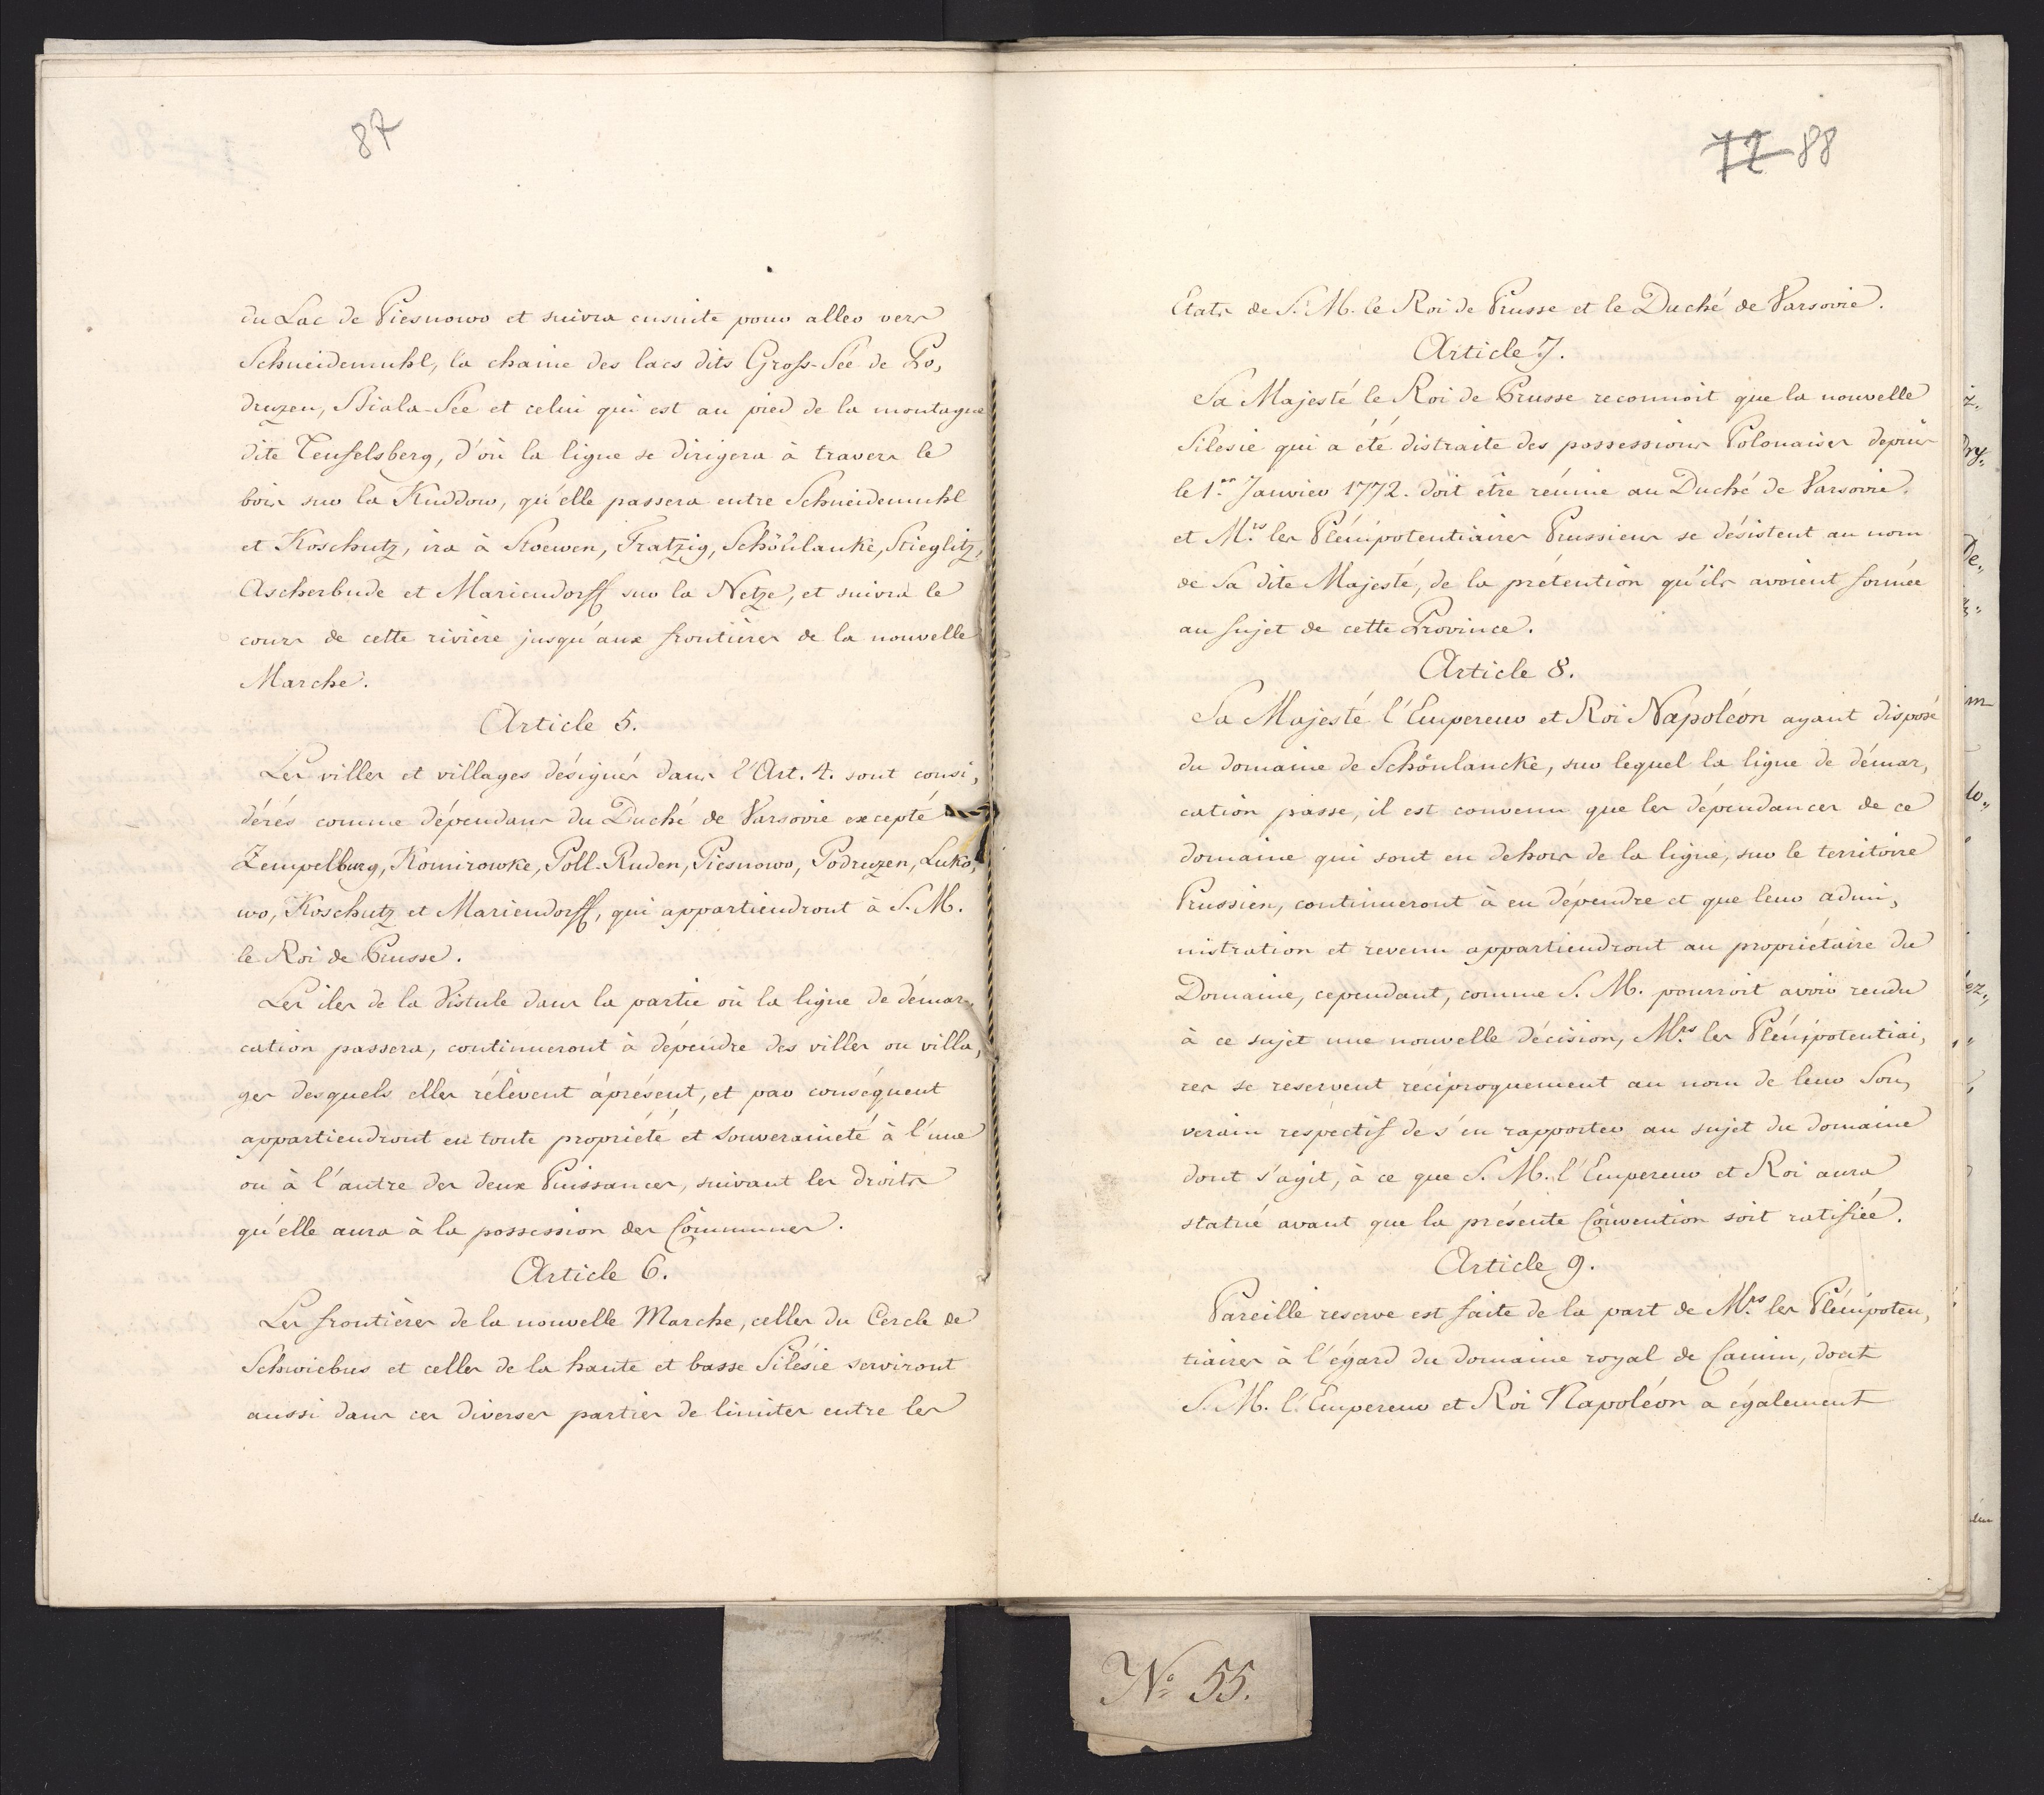 87
du Lac de Piesnowo et suivra ensuite pour aller vers
Schneidemuhl, la chaine des lacs dits Gross-Sée de Po,
druzen, Biala-Sée et celui qui est au pied de la montagne
dite Teufelsberg, d'où la ligne se dirigera à travers le
bois sur la Kuddow, qu'elle passera entre Schneidemuhl
et Koschutz, ira à Stoewen, Fratzig, Schönlanke, Stieglitz,
Ascherbude et Mariendorff sur la Netze, et suivra le
cours de cette rivière jusqu'aux frontières de la nouvelle
Marche.
Article 5.
Les villes et villages désignés dans l'Art. 4. sont consi,
dérés comme dépendans du Duché de Varsovie excepté
Zempelburg, Komirowke, Poll-Ruden, Piesnowo, Podruzen, Luko,
wo, Koschutz et Mariendorff, qui appartiendront à S. M.
le Roi de Prusse.
Les iles de la Vistule dans la partie où la ligne de démar,
cation passera, continueront à dépendre des villes ou villa,
ges desquels elles rélèvent àprésent, et par conséquent
appartiendront en toute propriété et Souveraineté à l'une
ou à l'autre des deux Puissances, suivant les droits
qu'elle aura à la possession des Communes.
Article 6.
Les frontières de la nouvelle Marche, celles du Cercle de
Schwiebus et celles de la haute et basse Silésie serviront
aussi dans ces diverses parties de limites entre les
72 88
Etats de S. M. le Roi de Prusse et le Duché de Varsovie.
Article 7.
Sa Majesté le Roi de Prusse reconnoit que la nouvelle
Silesie qui a été distraite des possessions Polonaises depuis
le 1.er Janvier 1772. doit etre réunie au Duché de Varsovie.
et M.rs les Plénipotentiaires Prussiens se désistent au nom
de Sa dite Majesté, de la prétention qu'ils avoient formée
au sujet de cette Province.
Article 8.
Sa Majesté l'Empereur et Roi Napoléon ayant disposé
du domaine de Schönlancke, sur lequel la ligne de démar,
cation passe, il est convenu que les dépendances de ce
domaine qui sont en dehors de la ligne, sur le territoire
Prussien, continueront à en dépendre et que leur admi,
nistration et revenu appartiendront au propriétaire du
Domaine, cependant, comme S. M. pourroit avoir rendu
à ce sujet une nouvelle décision, M.rs les Plénipotentiai,
res se reservent réciproquement au nom de leur Sou,
verain respectif de s'en rapporter au sujet du domaine
dont s'agit, à ce que S. M. l'Empereur et Roi aura
statué avant que la présente Convention soit ratifiée.
Article 9.
Pareille reserve est faite de la part de M.rs les Plénipoten,
tiaires à l'égard du domaine royal de Camin, dont
S. M. l'Empereur et Roi Napoléon a également
No 55.